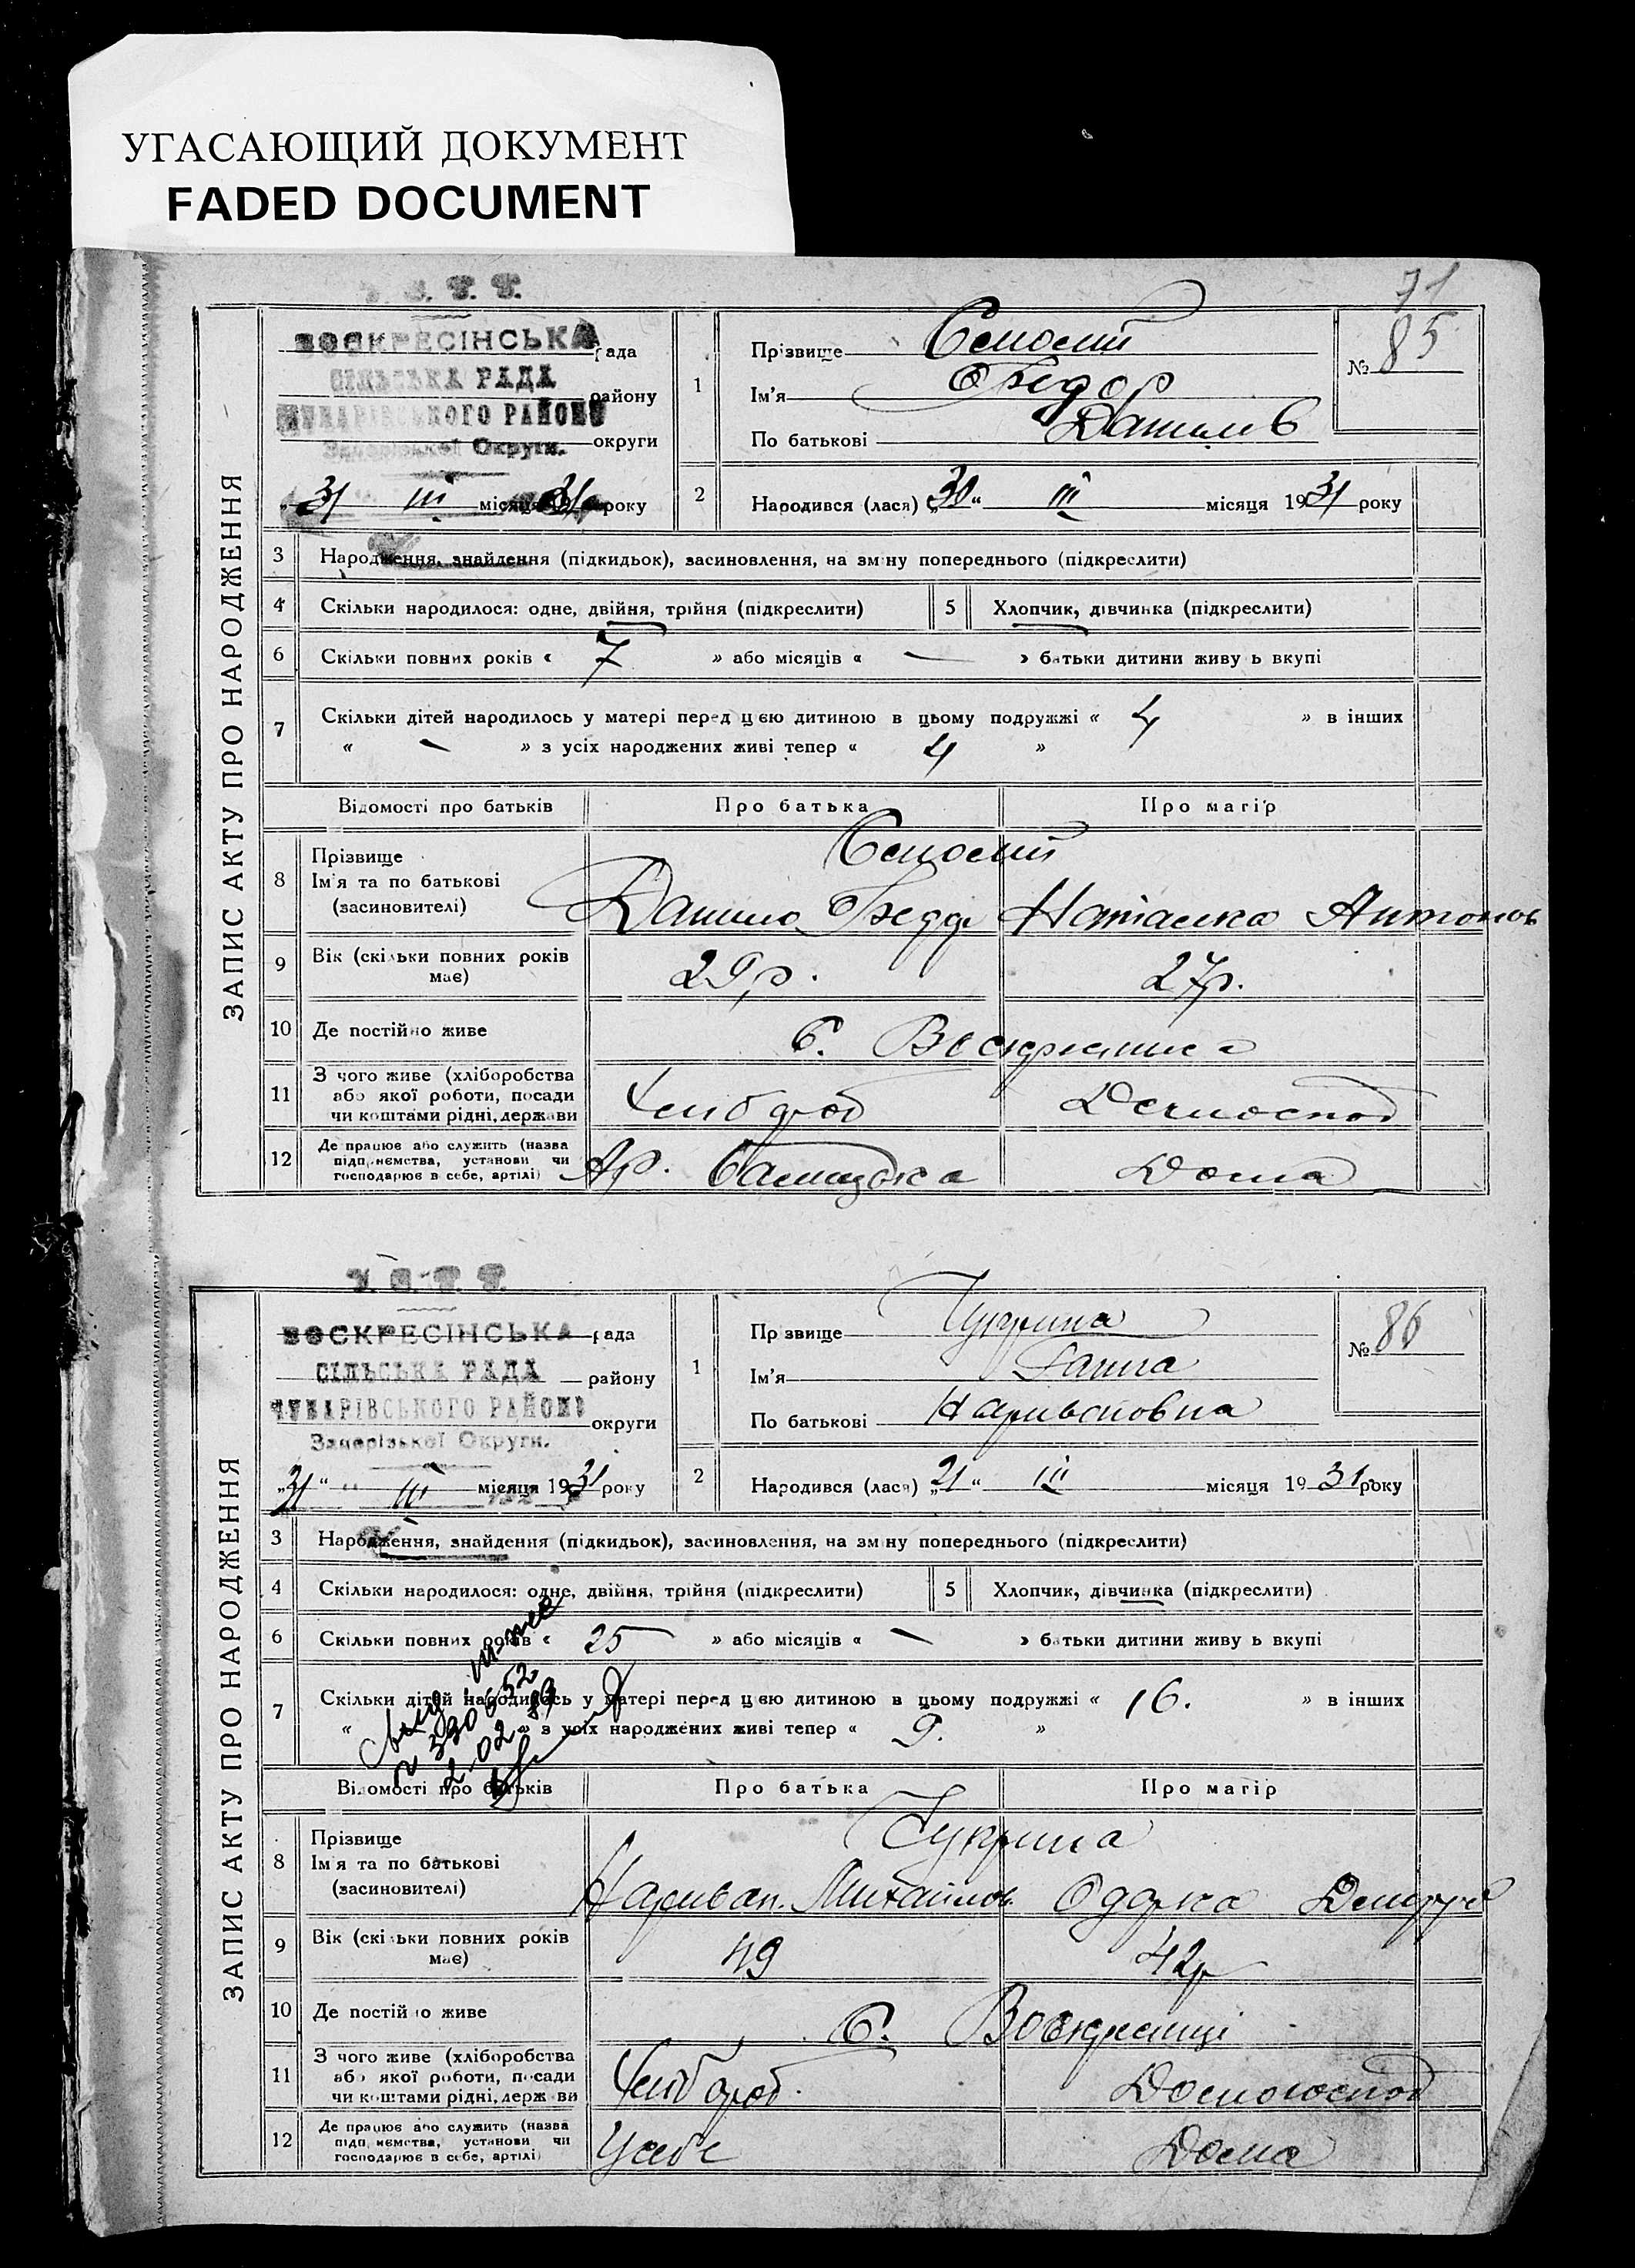 УГАСАЮЩИЙ ДОКУМЕНТ
FADED DOCUMENT
71
ЗАПИС АКТУ ПРО НАРОДЖЕННЯ
ВОСКРЕСІНСЬКА рада
СІЛЬСЬКА РАДА
району
ЧУБАРІВСЬКОГО РАЙОНУ
Запорізької Округи. округи
31 III місяця 1931 року
1 Прізвище
Ім'я Федор
По батькові Данилів
№ 85
2 Народився (лася) „30“ III місяця 1931 року
3 Народження, знайдення (підкидьок), засиновлення, на зміну попереднього (підкреслити)
4 Скільки народилося: одне, двійня, трійня (підкреслити) 5 Хлопчик, дівчинка (підкреслити)
6 Скільки повних років « 7 » або місяців « — » батьки дитини живуть вкупі
7 Скільки дітей народилось у матері перед цією дитиною в цьому подружжі « 4 » в інших
« - » з усіх народжених живі тепер « 4 »
Відомості про батьків Про батька Про матір
8 Прізвище
Ім'я та по батькові
(засиновителі)
Данило Федор Наталка Антонов
9 Вік (скільки повних років має) 29 р. 27 р.
10 Де постійно живе С.
11 З чого живе (хліборобства або якої роботи, посади чи коштами рідні, держави Хлібороб Домогоспод
12 Де працює або служить (назва підприємства, установи чи господарює в себе, артілі) Ар. Дома
ЗАПИС АКТУ ПРО НАРОДЖЕННЯ
У. С. Р. Р.
ВОСКРЕСІНСЬКА рада
СІЛЬСЬКА РАДА району
ЧУБАРІВСЬКОГО РАЙОНУ
округи
Запорізької Округи.
„31“ III місяця 1931 року
1 Прізвище
Ім'я Ганна
По батькові
№ 86
2 Народився (лася) „21“ III місяця 1931 року
3 Народження, знайдення (підкидьок), засиновлення, на зміну попереднього (підкреслити)
4 Скільки народилося: одне, двійня, трійня (підкреслити) 5 Хлопчик, дівчинка (підкреслити)
6 Скільки повних років « 25 » або місяців « - » батьки дитини живуть вкупі
7 Скільки дітей народилось у матері перед цією дитиною в цьому подружжі « 16. » в інших
« » з усіх народжених живі тепер « 9. »
Відомості про батьків Про батька Про матір
8 Прізвище
Ім'я та по батькові
(засиновителі)
Михайлов. Одарка
9 Вік (скільки повних років має) 49 42 р
10 Де постійно живе С.
11 З чого живе (хліборобства або якої роботи, посади чи коштами рідні, держави Хлібороб. Домогоспод
12 Де працює або служить (назва підприємства, установи чи господарює в себе, артілі) У себе Дома